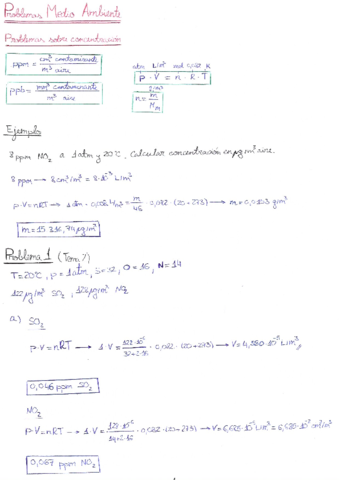 Problemas Medio Ambiente
Problemas sobre concentración
ppm = cm³ contaminante / m³ aire
ppb = mm³ contaminante / m³ aire
atm L/m³ mol K
P · V = n · R · T
n = m / Mm
Ejemplo
8 ppm NO₂ a 1 atm y 20°C. Calcular concentración en µg/m³ aire.
8 ppm → 8 cm³/m³ = 8·10⁻³ L/m³
p·V = nRT → 1 atm · 0,008 L/m³ = m/46 · 0,082 · (20+273) → m = 0,0153 g/m³
m = 15 316, 74 µg/m³
Problema 1 (Tema 7)
T = 20°C, p = 1 atm, S = 32, O = 16, N = 14
122 µg/m³ SO₂, 128 µg/m³ NO₂
a) SO₂
p·V = nRT → 1·V = 122·10⁻⁶ / 32+2·16 · 0,082 · (20+273) → V = 4,580·10⁻⁵ L/m³
0,046 ppm SO₂
NO₂
p·V = nRT → 1·V = 128·10⁻⁶ / 14+2·16 · 0,082 · (20+273) → V = 6,685·10⁻⁵ L/m³ = 6,685·10⁻² cm³/m³
0,067 ppm NO₂